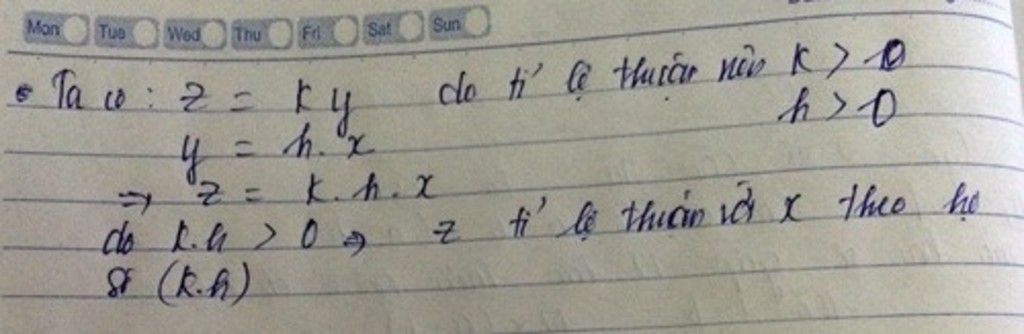 Mon Tue Wed Thu Fri Sat Sun
Ta có : z = k y do tỉ lệ thuận nên k > 0
y = h. x h > 0
⇒ z = k. h. x
do k.h > 0 ⇒ z tỉ lệ thuận với x theo hệ
số (k.h)